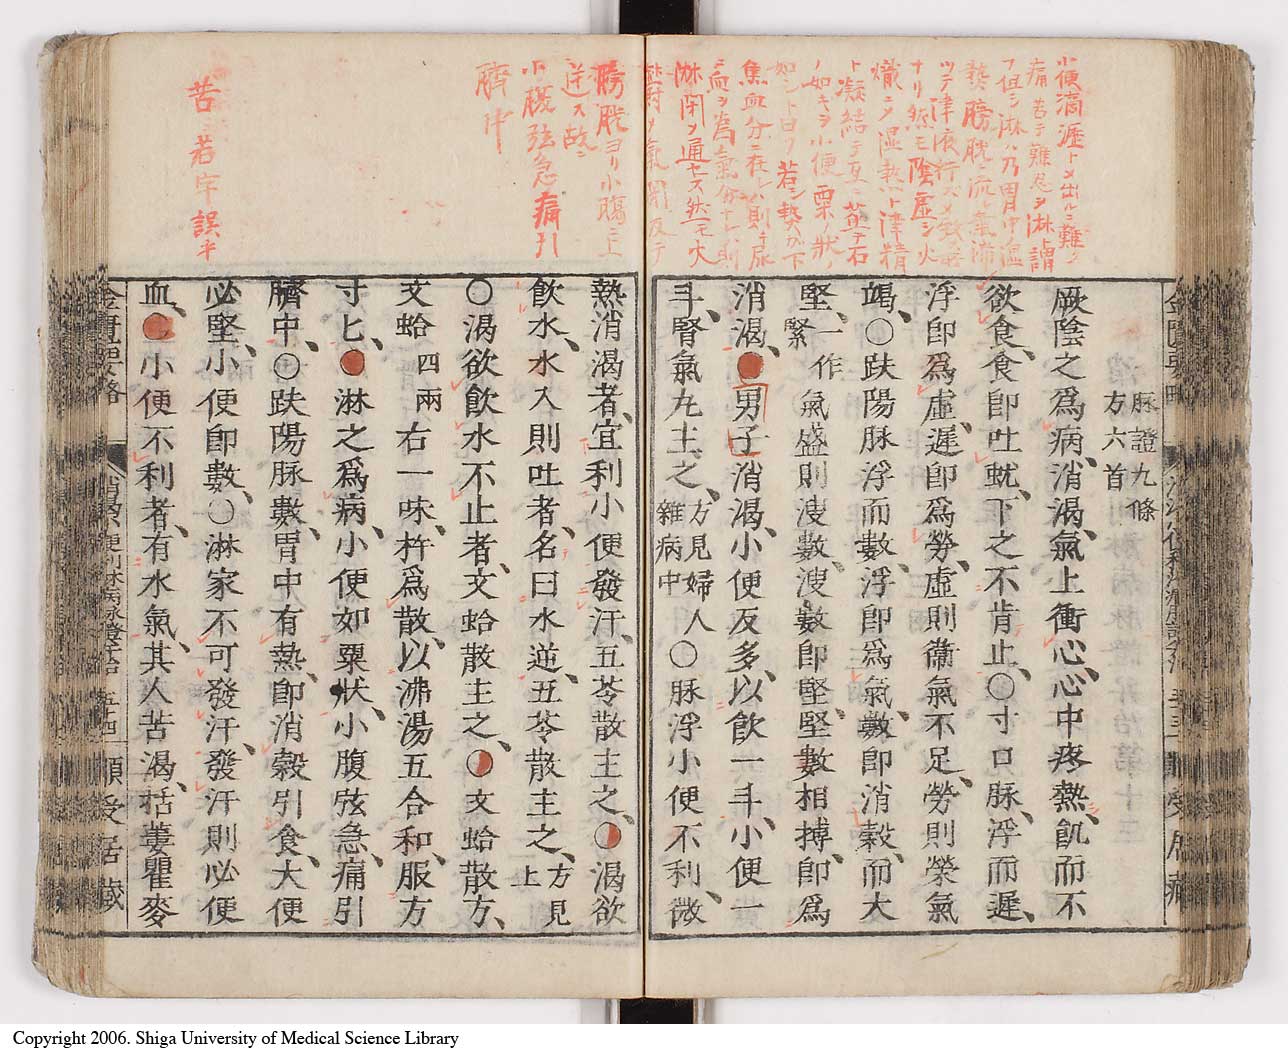 小便滴瀝トメ出ルニ難ク
痛苦シテ難忍ヲ淋ト謂
フ但シ淋ハ乃胃中
熱膀胱ニ流
ツテ津液行ズ
ナリ然モ陰虚シ火
熾ニメ湿熱ト津精
ト凝結シテ互ニ 石
ノ如キヲ小便粟ノ状
如シト曰フ 若シ熱カ下
焦血分ニ在レハ則チ尿
血ヲ為氣分ナレハ則
淋閉メ通セス然モ火
脉證九條
方六首
厥陰之爲病、消渴、氣上衝心、心中疼熱、飢而不
欲食、食即吐蚘、下之不肯止、〇寸口脉、浮而遲、
浮即爲虛、遲即爲勞、虛則衞氣不足、勞則榮氣
竭、〇趺陽脉浮而數、浮即爲氣、數即消穀、而大
堅、一作緊氣盛則溲數、溲數即堅、堅數相搏、即爲
消渴、男子消渴、小便反多、以飮一斗、小便一
斗、腎氣丸主之、方見婦人雜病中〇脉浮小便不利、微
熱消渴者、宜利小便發汗、五苓散主之、〇渴欲
飮水、水入則吐者、名曰水逆、五苓散主之、方見上
〇渴欲飮水不止者、文蛤散主之、〇文蛤散方、
文蛤四兩 右一味、杵爲散、以沸湯五合和、服方
寸匕、淋之爲病、小便如粟狀、小腹弦急、痛引
臍中、〇趺陽脉數、胃中有熱、即消穀引食、大便
必堅、小便即數、〇淋家不可發汗、發汗則必便
血、小便不利者、有水氣、其人苦渴、栝蔞瞿麥
膀胱ヨリ小腸ニ上
逆ス故ニ
小腹弦急痛引
臍中
苦 若字誤乎
金匱要略
五四
順受居藏
Copyright 2006. Shiga University of Medical Science Library